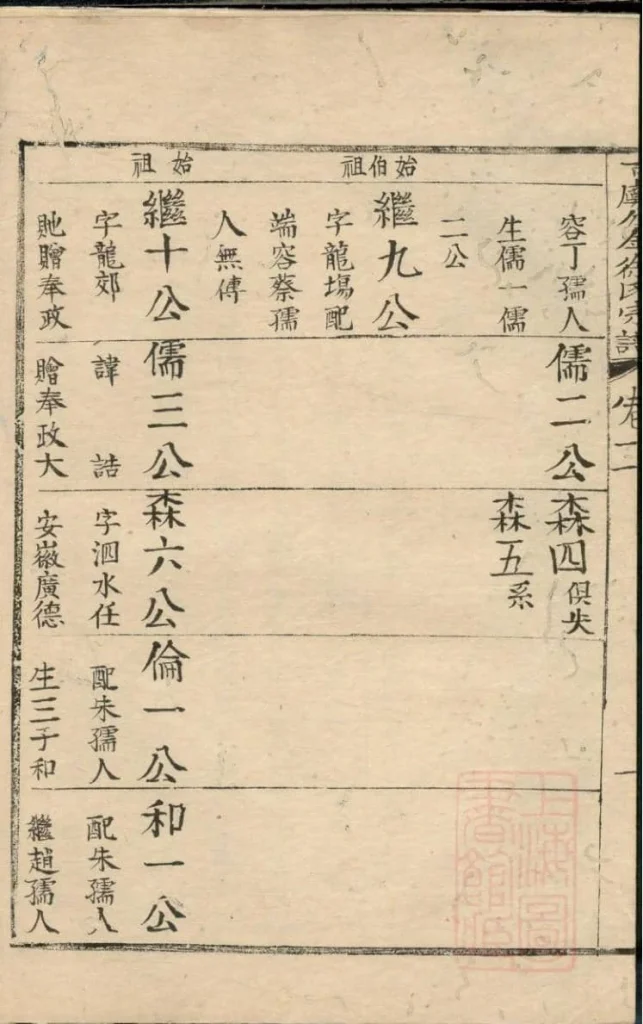 始伯祖
始祖
容丁孺人
生儒一儒
二公
繼九公
字龍塲配
端容蔡孺
人無傳
繼十公
字龍郊
貤贈奉政
儒二公
儒三公
諱誥
贈奉政大
森四俱失
森五系
森六公
字泗水任
安徽廣德
倫一公
配朱孺人
生三子和
和一公
配朱孺人
繼趙孺人
徐氏宗譜
卷二
上海圖
書館